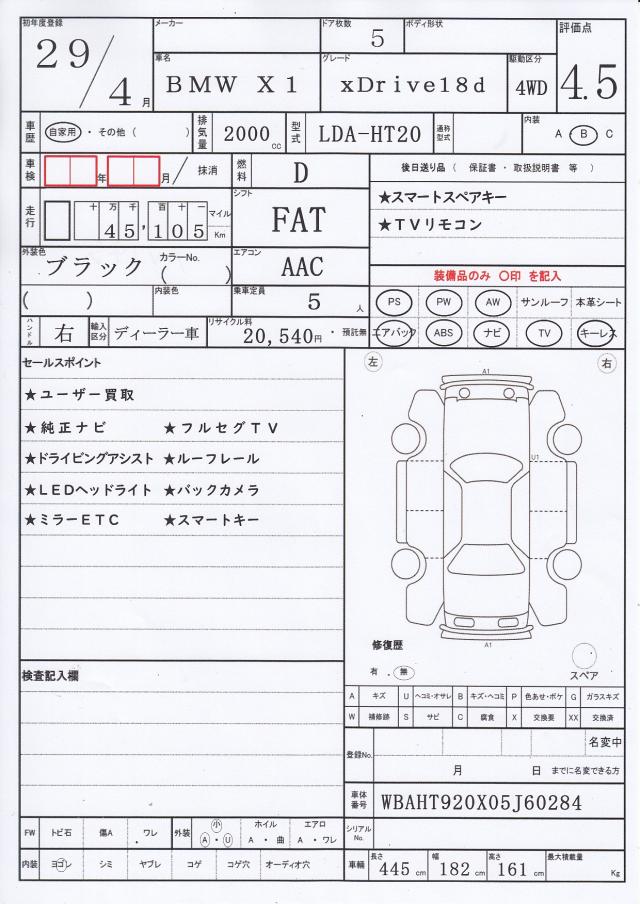 初年度登録 メーカー ドア枚数 ボディ形状 評価点
29/4月 5
車名 グレード 駆動区分
BMW X1 xDrive18d 4WD 4.5
車歴 自家用 ・ その他 ( ) 排気量 2000 cc 型式 LDA-HT20 通称型式 内装 A ・ B C
車検 年 月 / 抹消 燃料 D 後日送り品 ( 保証書 ・ 取扱説明書 等 )
走行 十 万 千 百 十 一 マイル Km シフト ★スマートスペアキー
45,105 FAT ★TVリモコン
外装色 ブラック カラーNo. ( ) エアコン AAC 装備品のみ 〇印 を記入
( ) 内装色 乗車定員 5 人 PS PW AW サンルーフ 本革シート
ハンドル 右 輸入区分 ディーラー車 リサイクル料 20,540円 ・ 預託無 エアバック ABS ナビ TV キーレス
セールスポイント 左 右
★ユーザー買取 A1
★純正ナビ ★フルセグTV
★ドライビングアシスト ★ルーフレール U1
★LEDヘッドライト ★バックカメラ
★ミラーETC ★スマートキー
修復歴 A1
有 . 無 スペア
検査記入欄
A キズ U ヘコミ・オサレ B キズ・ヘコミ P 色あせ・ボケ G ガラスキズ
W 補修跡 S サビ C 腐食 X 交換要 XX 交換済
登録No. 名変中
月 日 までに名変できる方
車体番号 WBAHT920X05J60284
FW トビ石 傷A ・ ワレ 外装 小 A ・ U ホイル A ・ 曲 エアロ A ・ ワレ シリアルNo.
内装 ヨゴレ シミ ヤブレ コゲ コゲ穴 オーディオ穴 車輌 長さ 445 cm 幅 182 cm 高さ 161 cm 最大積載量 Kg